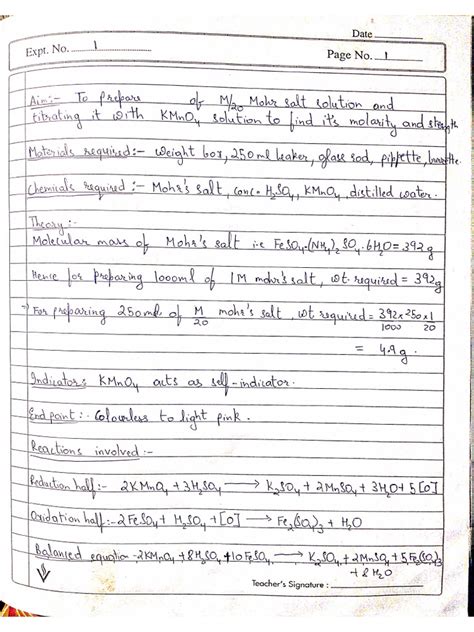 Date
Expt. No. 1
Page No. 1
Aim:- To prepare of M/20 Mohr salt solution and
titrating it with KMnO₄ solution to find it's molarity and strength
Materials required:- weight box, 250 ml beaker, glass rod, pippette, burette.
Chemicals required:- Mohr's salt, conc. H₂SO₄, KMnO₄, distilled water.
Theory:-
Molecular mass of Mohr's salt i.e FeSO₄.(NH₄)₂SO₄.6H₂O = 392g
Hence for preparing 1000ml of 1M mohr's salt, wt. required = 392g
→ For preparing 250ml. of M/20 mohr's salt, wt required = 392×250×1 / 1000 20
= 4.9g.
Indicator: KMnO₄ acts as self-indicator.
End point:- Colourless to light pink.
Reactions involved:-
Reduction half:- 2KMnO₄ + 3H₂SO₄ → K₂SO₄ + 2MnSO₄ + 3H₂O + 5[O]
Oxidation half:- 2FeSO₄ + H₂SO₄ + [O] → Fe₂(SO₄)₃ + H₂O
Balanced equation - 2KMnO₄ + 8H₂SO₄ + 10FeSO₄ → K₂SO₄ + 2MnSO₄ + 5Fe₂(SO₄)₃
+ 8H₂O
Teacher's Signature :